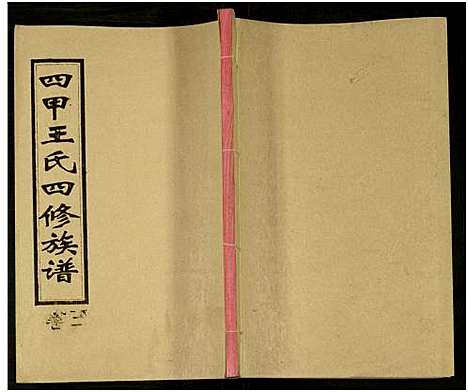 四甲王氏四修族谱
卷二